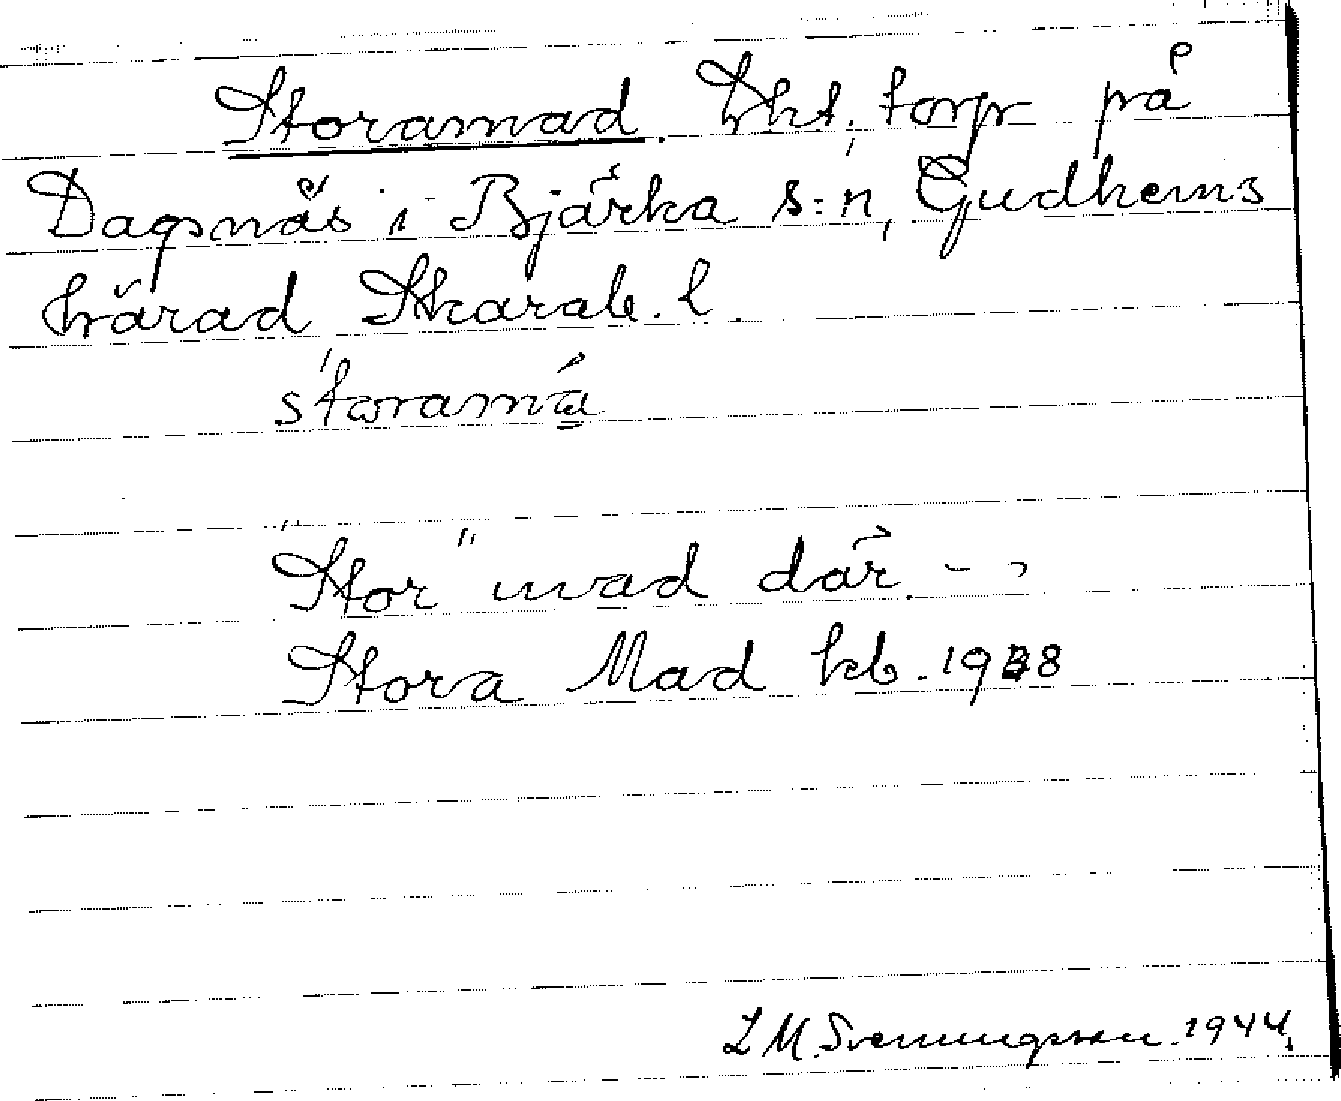 Storamad. Lht, torp på
Dagsnäs i Bjärka s:n, Gudhems
härad Skarab. l.
storamá
"Stor" mad där. -
Stora Mad kb. 1938
L M. Svenungsson. 1944.